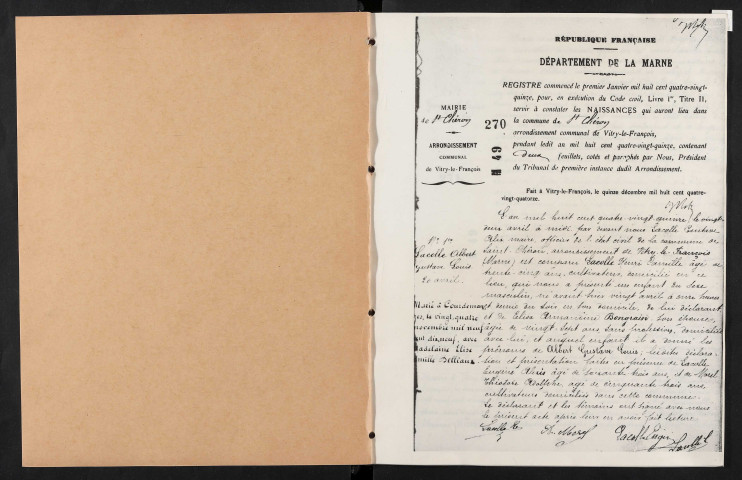 RÉPUBLIQUE FRANÇAISE
DÉPARTEMENT DE LA MARNE
MAIRIE
de St Chéron
ARRONDISSEMENT
COMMUNAL
de Vitry-le-François
270
REGISTRE commencé le premier Janvier mil huit cent quatre-vingt-
quinze, pour, en exécution du Code civil, Livre Ier, Titre II,
servir à constater les NAISSANCES qui auront lieu dans
la commune de St Chéron
arrondissement communal de Vitry-le-François,
pendant ledit an mil huit cent quatre-vingt-quinze, contenant
deux feuillets, cotés et paraphés par Nous, Président
du Tribunal de première instance dudit Arrondissement.
Fait à Vitry-le-François, le quinze décembre mil huit cent quatre-
vingt-quatorze.
Lacolle Albert
Gustave Louis
20 avril
Marié à Courdemanges
le vingt-quatre
novembre mil neuf
cent dix neuf, avec
Madelaine Elise
L'an mil huit cent quatre vingt quinze, le vingt
deux avril à midi, par devant nous Lacolle Gustave
maire, officier de l'état civil de la commune de
Saint Chéron, arrondissement de Vitry-le-François
(Marne) est comparu Lacolle Henri Camille âgé de
trente cinq ans, cultivateur, domicilié en ce
lieu, qui nous a présenté un enfant du sexe
masculin, né avant hier vingt avril à onze heures
et demie du soir en son domicile, de lui déclarant
et de Elise son épouse,
âgée de vingt sept ans, sans profession, domiciliée
avec lui, et auquel enfant il a donné les
prénoms de Albert Gustave Louis, lesdites déclara-
tion et présentation faites en présence de Lacolle
Eugène âgé de soixante trois ans, et de Morel
Théodore Adolphe, âgé de cinquante trois ans,
cultivateurs domiciliés dans cette commune.
Le déclarant et les témoins ont signé avec nous
le présent acte après leur en avoir fait lecture.